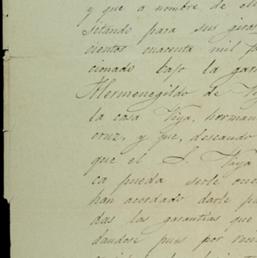 y que a nombre de ell
sitando para sus giros
cientos cuarenta mil p
cionado bajo la gar
Hermenegildo de
la casa Viya, herman
cruz, y que, deseando
que el S. Viya
ca pueda serle one
han acordado darle p
das las garantías que
dandose pues por